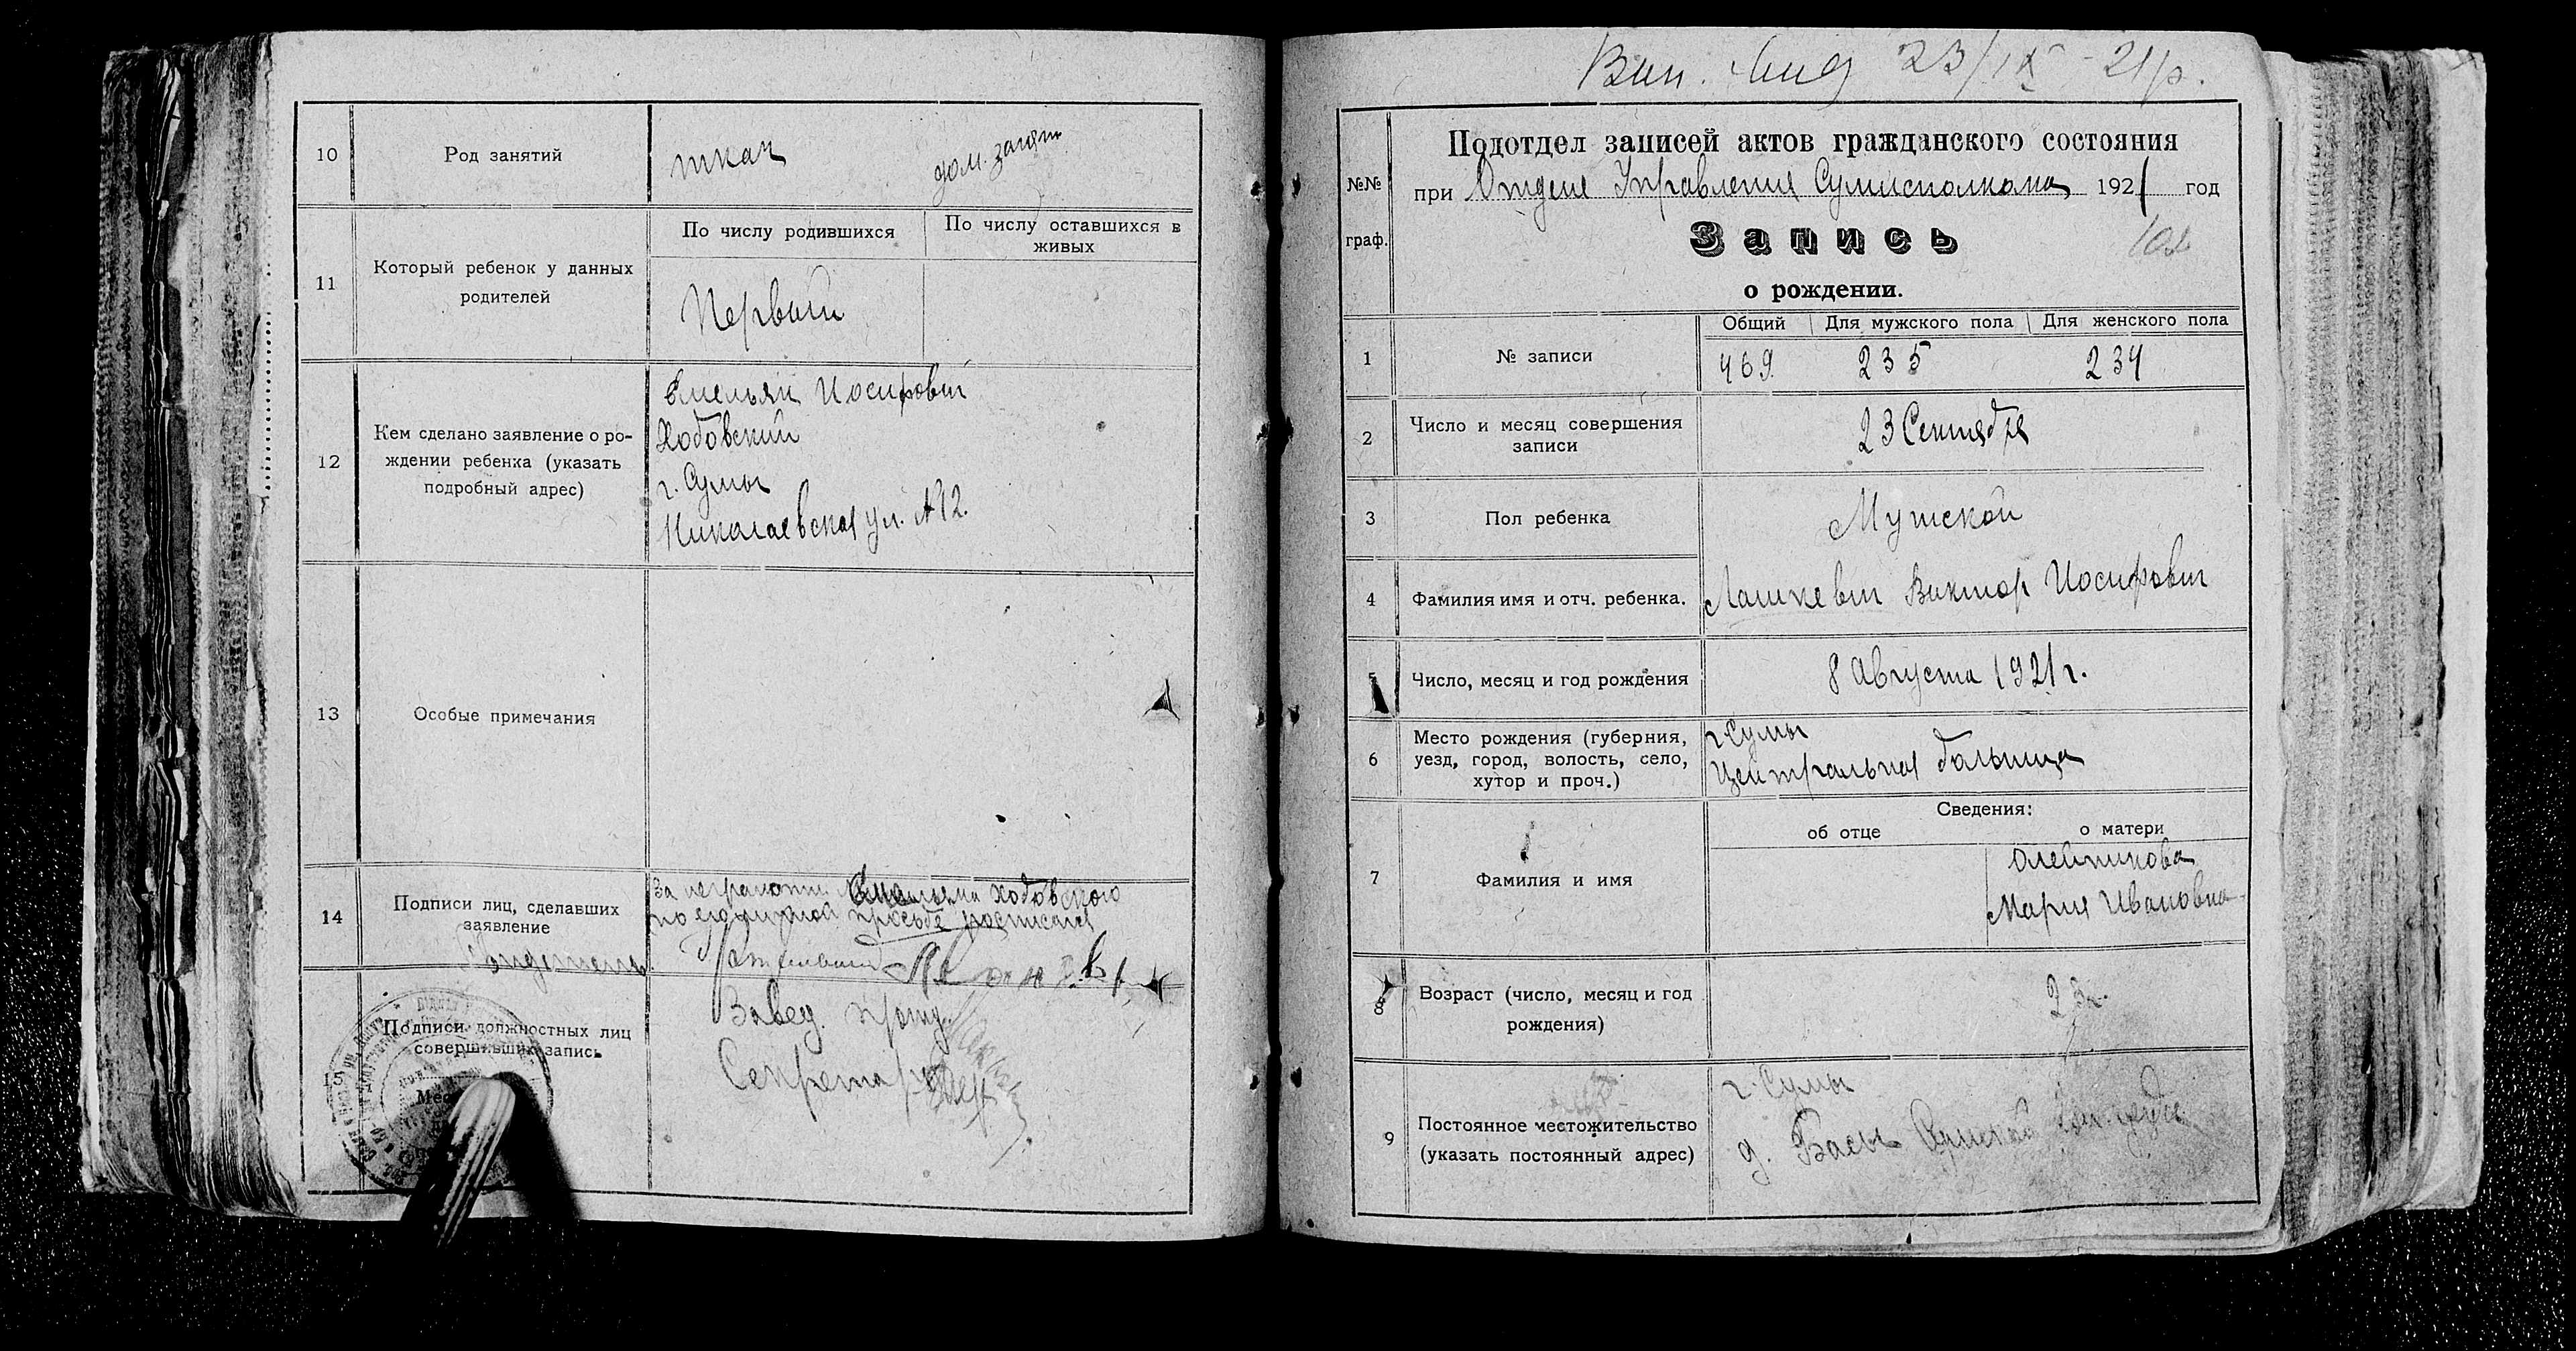 10
Род занятий
ткач
дом. занят.
11
Который ребенок у данных
родителей
По числу родившихся
По числу оставшихся в
живых
Первый
12
Кем сделано заявление о ро-
ждении ребенка (указать
подробный адрес)
Емельян Иосифович
Ходовский
г. Сумы
Николаевская ул. №12.
13
Особые примечания
14
Подписи лиц, сделавших
заявление
За неграмотн. Емельяна Ходовского
по его личной просьбе росписался
15
Подписи должностных лиц
совершивших запись
Завед.
Секретарь
23/IX - 21р.
№№
граф.
Подотдел записей актов гражданского состояния
при Отделе Управления Сумисполкома 1921 год
Запись
о рождении.
1
№ записи
Общий Для мужского пола Для женского пола
469 235 234
2
Число и месяц совершения
записи
23 Сентября
3
Пол ребенка
Мужской
4
Фамилия имя и отч. ребенка.
Лашкевич Виктор Иосифович
5
Число, месяц и год рождения
8 Августа 1921 г.
6
Место рождения (губерния,
уезд, город, волость, село,
хутор и проч.)
г. Сумы
Центральная больница
7
Фамилия и имя
Сведения:
об отце
о матери
Олейникова
Мария Ивановна
8
Возраст (число, месяц и год
рождения)
23 г.
9
Постоянное местожительство
(указать постоянный адрес)
г. Сумы
д. Басы Сумской